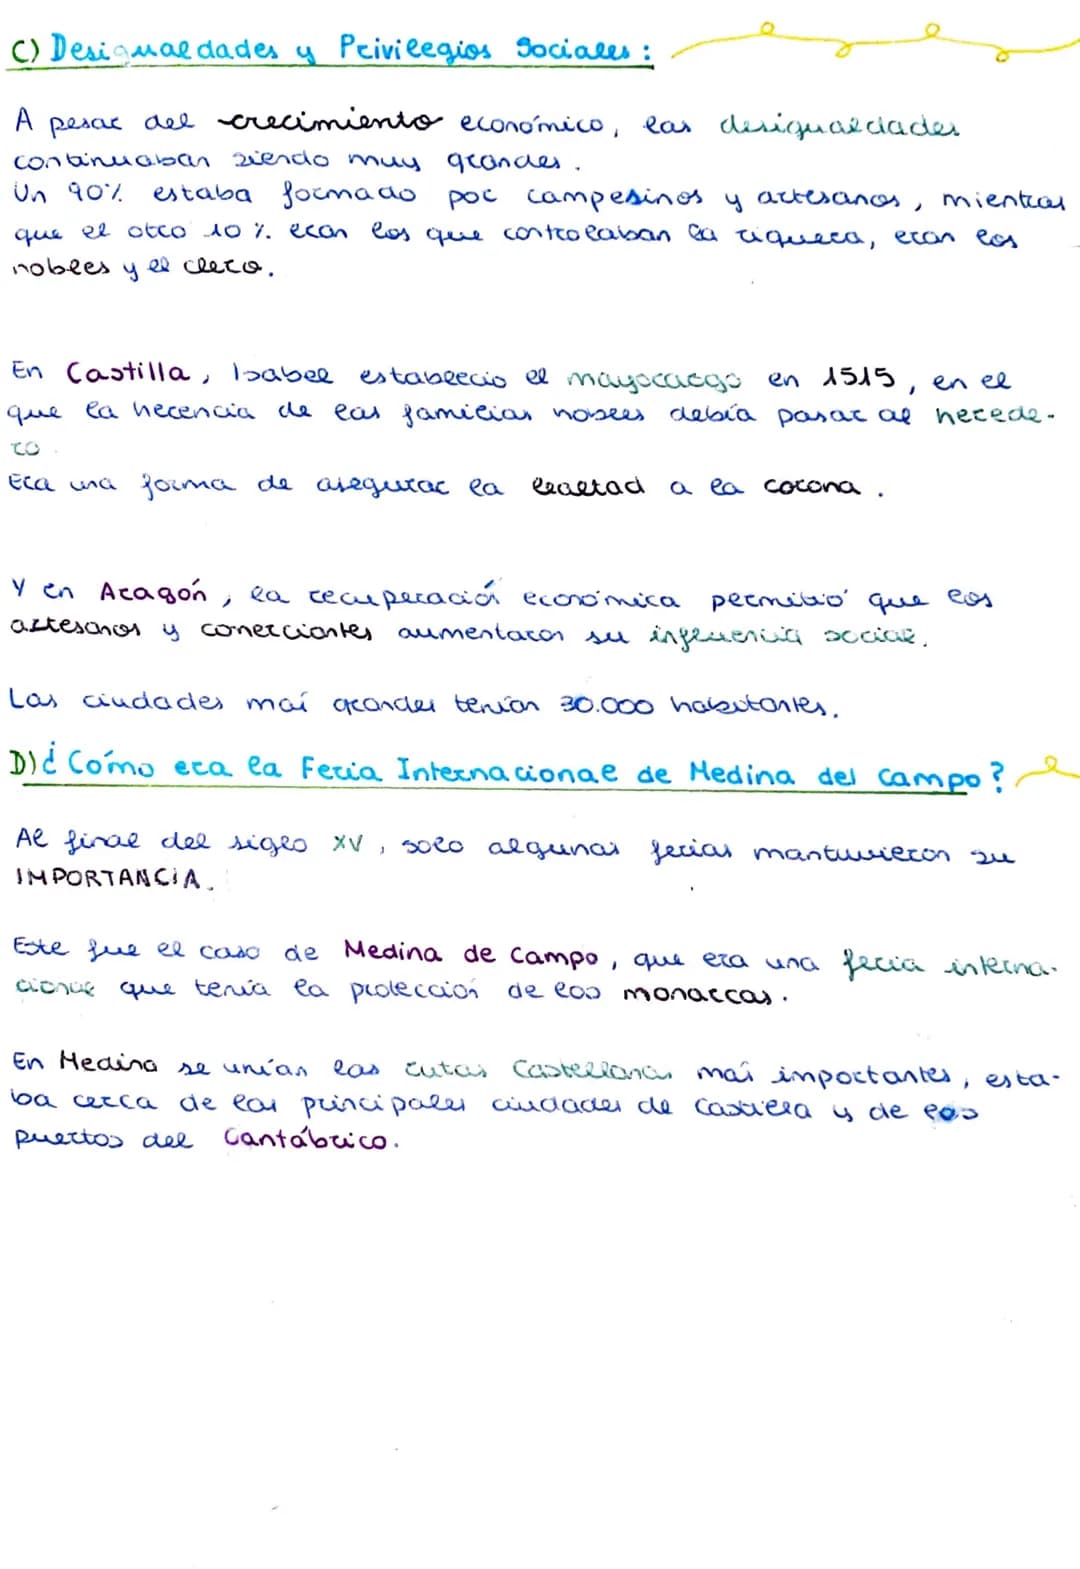 C) Desigualdades y Privilegios Sociales:
A pesar del crecimiento económico, las desigualdades
continuaban siendo muy grandes.
Un 90% estaba formado por campesinos y artesanos, mientras
que el otro 10%. eran los que controlaban la riqueza, eran los
nobles y el clero.
En Castilla, Isabel establecio el mayorazgo en 1515, en el
que la herencia de las familias nobles debía pasar al herede-
ro.
Era una forma de asegurar la lealtad a la corona.
Y en Aragón, la recuperación económica permitió que los
artesanos y comerciantes aumentaron su influencia social.
Las ciudades más grandes tenían 30.000 habitantes.
D) ¿Cómo era la Feria Internacional de Medina del Campo?
Al final del siglo XV, solo algunas ferias mantuvieron su
IMPORTANCIA.
Este fue el caso de Medina de Campo, que era una feria interna-
cional que tenía la protección de los monarcas.
En Medina se unían las rutas Castellanas más importantes, esta-
ba cerca de las principales ciudades de Castilla y de los
puertos del Cantábrico.